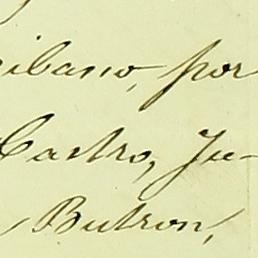 cribano, por
Castro, Ju-
Butron,